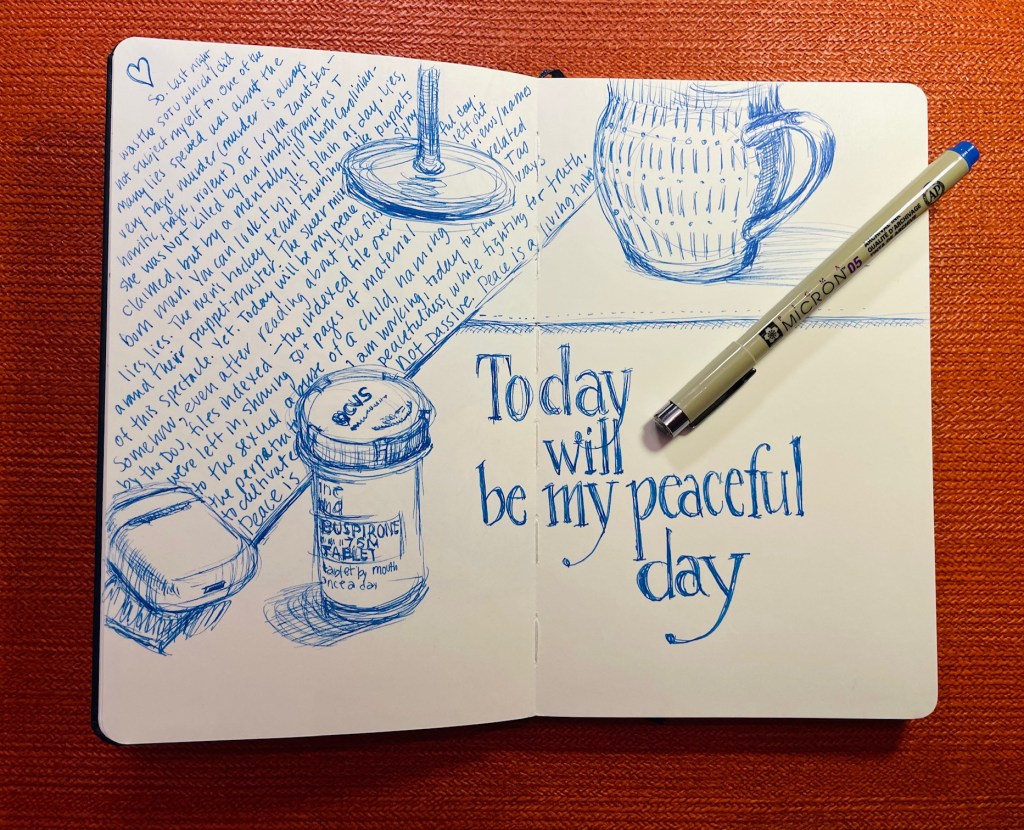 So. Last night
was the SOTU which I did
not subject myself to. One of the
many lies spewed was about the
very tragic murder (murder is always
horrific, tragic, violent) of Iryna
she was NOT killed by an immigrant as T
claimed, but by a mentally ill North Carolinian-
born man. You can look it up, it's plain as day, yes,
lies, lies. The men's hockey team fawning like puppets
around their puppet-master. The sheer
of this spectacle. Yet. Today will be my peaceful day.
Somehow, even after reading about the left out
by the DOJ, files indexed — the indexed file
were left in, showing 50+ pages of material related
to the sexual abuse of a child, naming too
the perpetrator. I am working, today, to find ways
to cultivate peacefulness, while fighting for truth.
Peace is NOT passive. Peace is a living thing.
CVS
BUSPIRONE
TABLET
tablet by mouth
once a day
Today
will
be my peaceful
day
MICRON 05
QUALITÉ D'ARCHIVAGE
AP